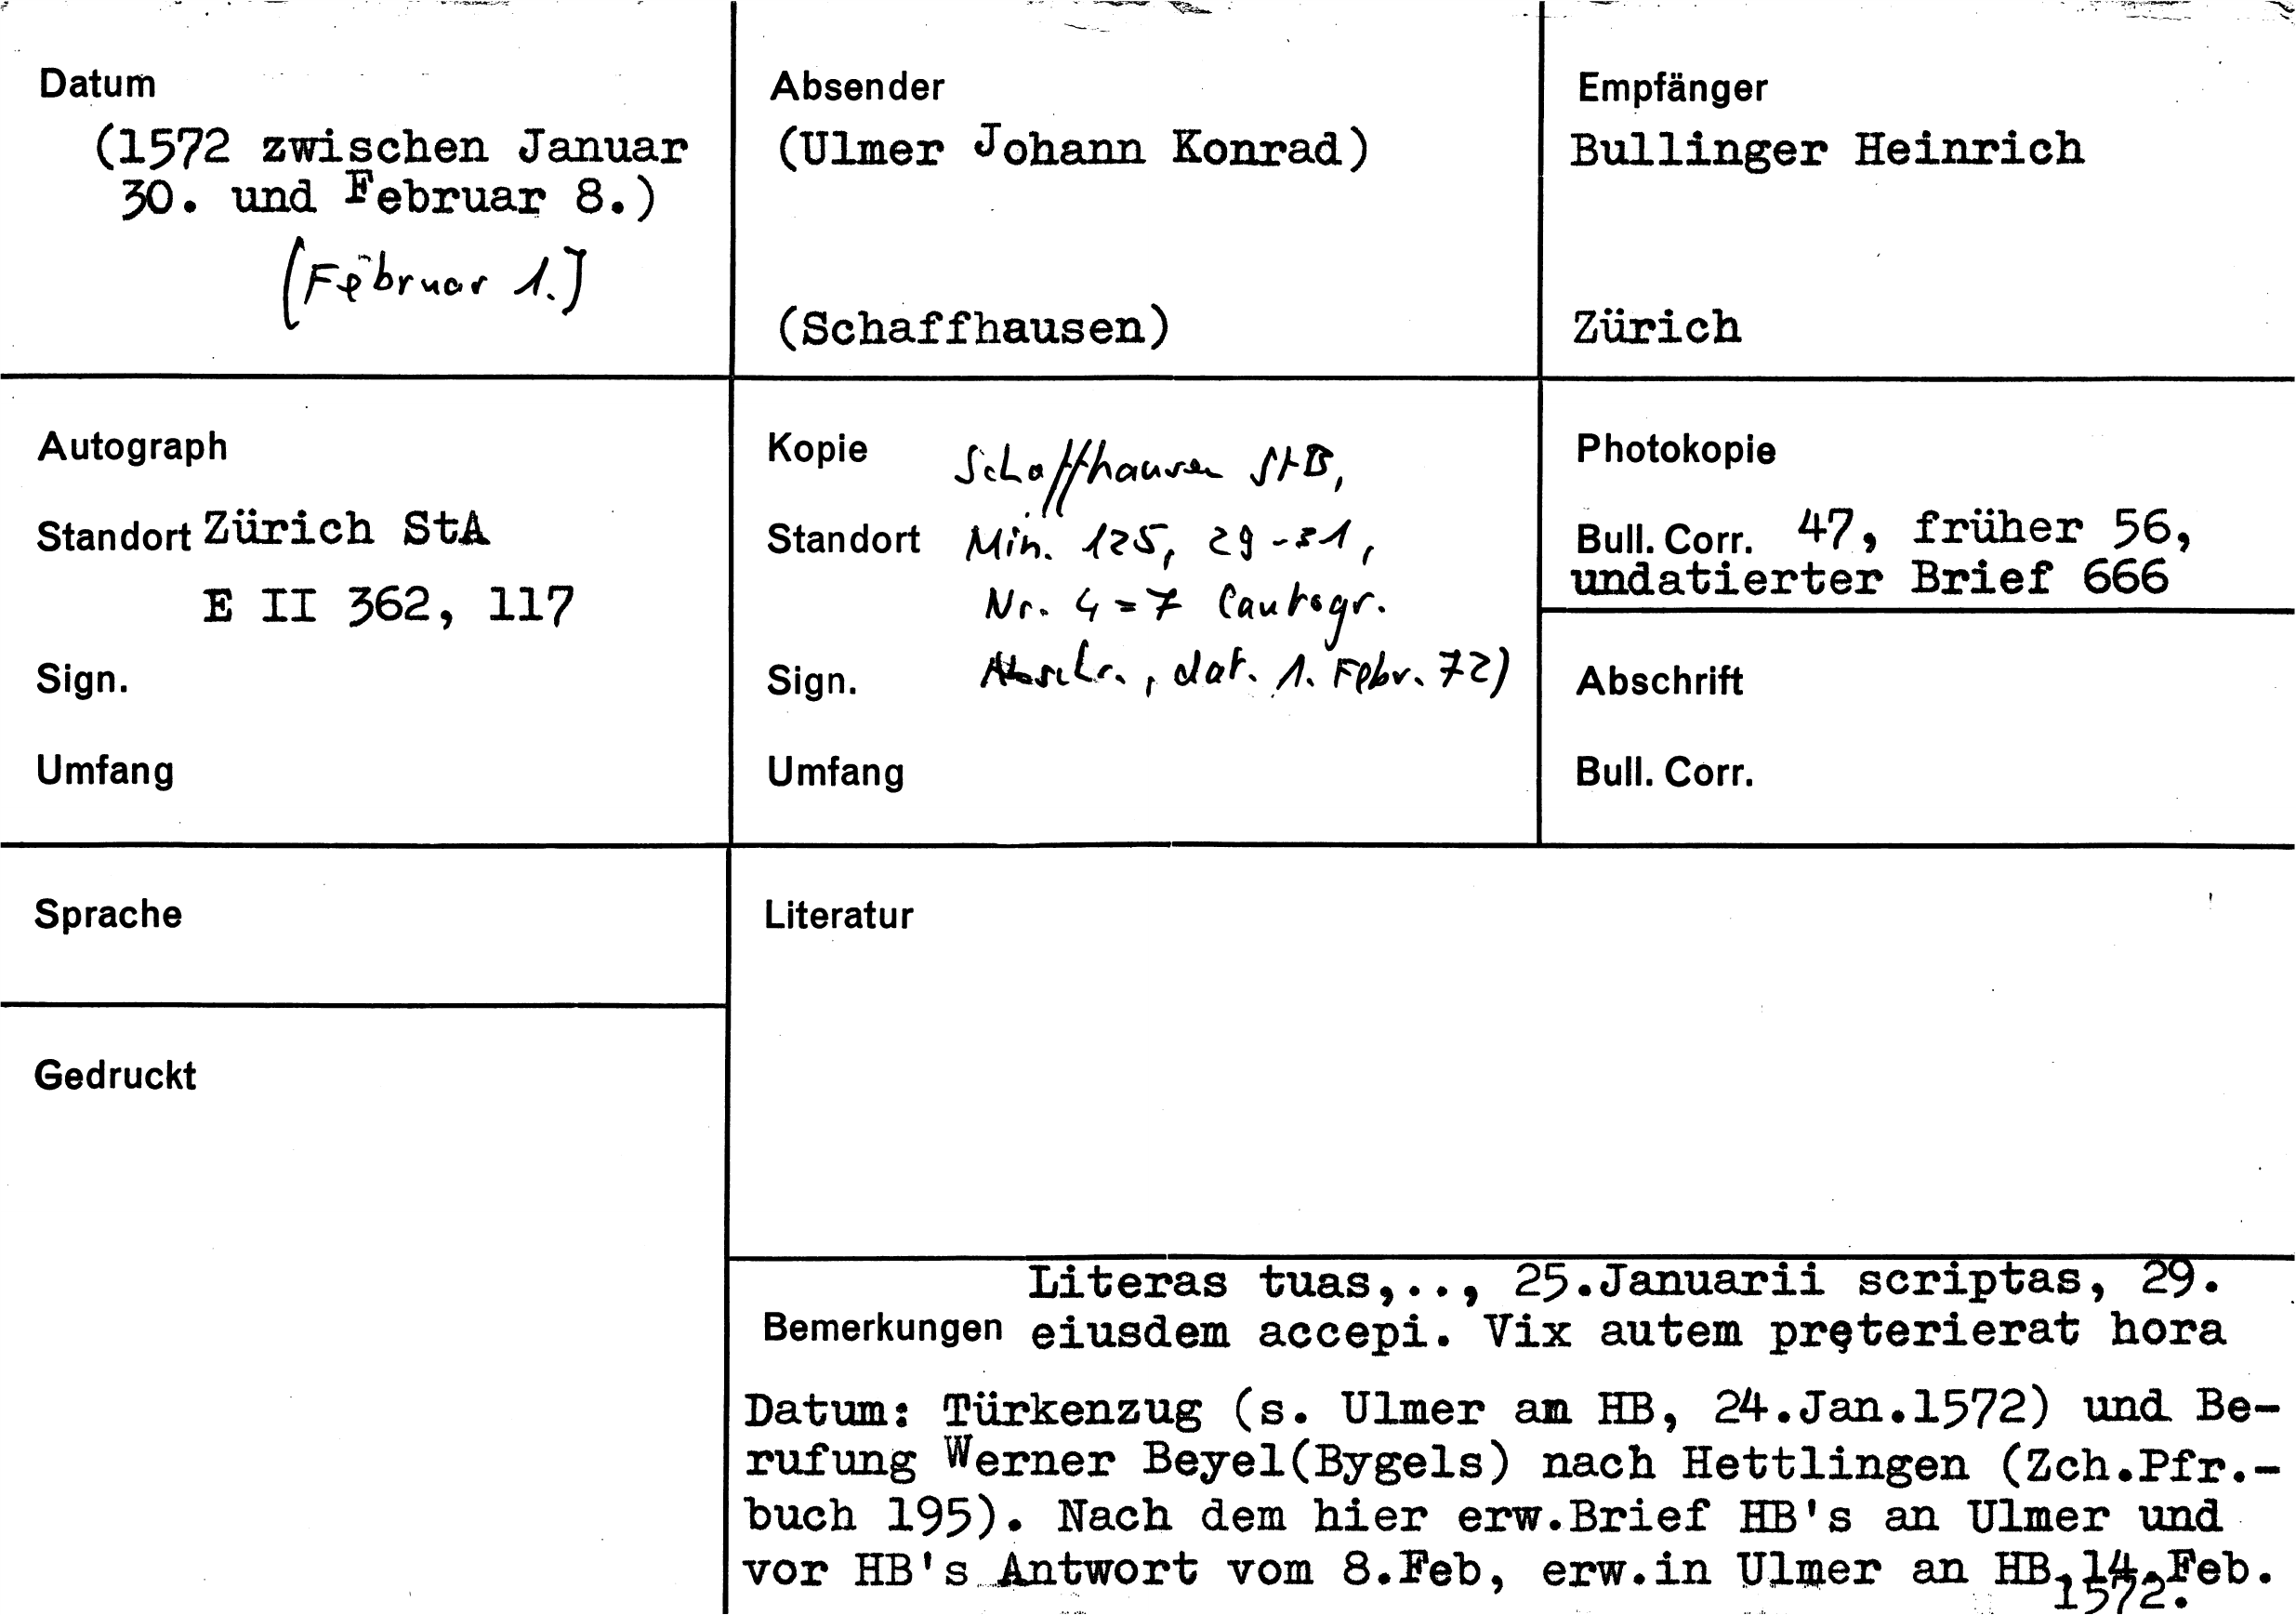 Datum
(1572 zwischen Januar
30. und Februar 8.)
[Februar 1.]
Absender
(Ulmer Johann Konrad)
(Schaffhausen)
Empfänger
Bullinger Heinrich
Zürich
Autograph
Standort Zürich StA
E II 362, 117
Sign.
Umfang
Kopie Schaffhausen StB,
Standort Min. 125, 29-31,
Nr. 4=7 (autogr.
Sign. Abschr., dat. 1. Febr. 72)
Umfang
Photokopie
Bull. Corr. 47, früher 56,
undatierter Brief 666
Abschrift
Bull. Corr.
Sprache
Gedruckt
Literatur
Literas tuas,.., 25.Januarii scriptas, 29.
Bemerkungen eiusdem accepi. Vix autem pręterierat hora
Datum: Türkenzug (s. Ulmer an HB, 24.Jan.1572) und Be-
rufung Werner Beyel(Bygels) nach Hettlingen (Zch.Pfr.-
buch 195). Nach dem hier erw.Brief HB's an Ulmer und
vor HB's Antwort vom 8.Feb, erw.in Ulmer an HB,14.Feb.
1572.